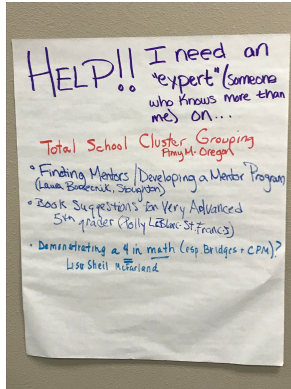 HELP!! I need an
"expert" (someone
who knows more than
me) on...
Total School Cluster Grouping
Amy M. Oregon
• Finding Mentors / Developing a Mentor Program
(Laura, Stoughton)
• Book Suggestions for Very Advanced
5th grader (Polly LeBlanc - St. Francis)
• Demonstrating a 4 in math (esp. Bridges + CPM)?
Lisa Sheil McFarland